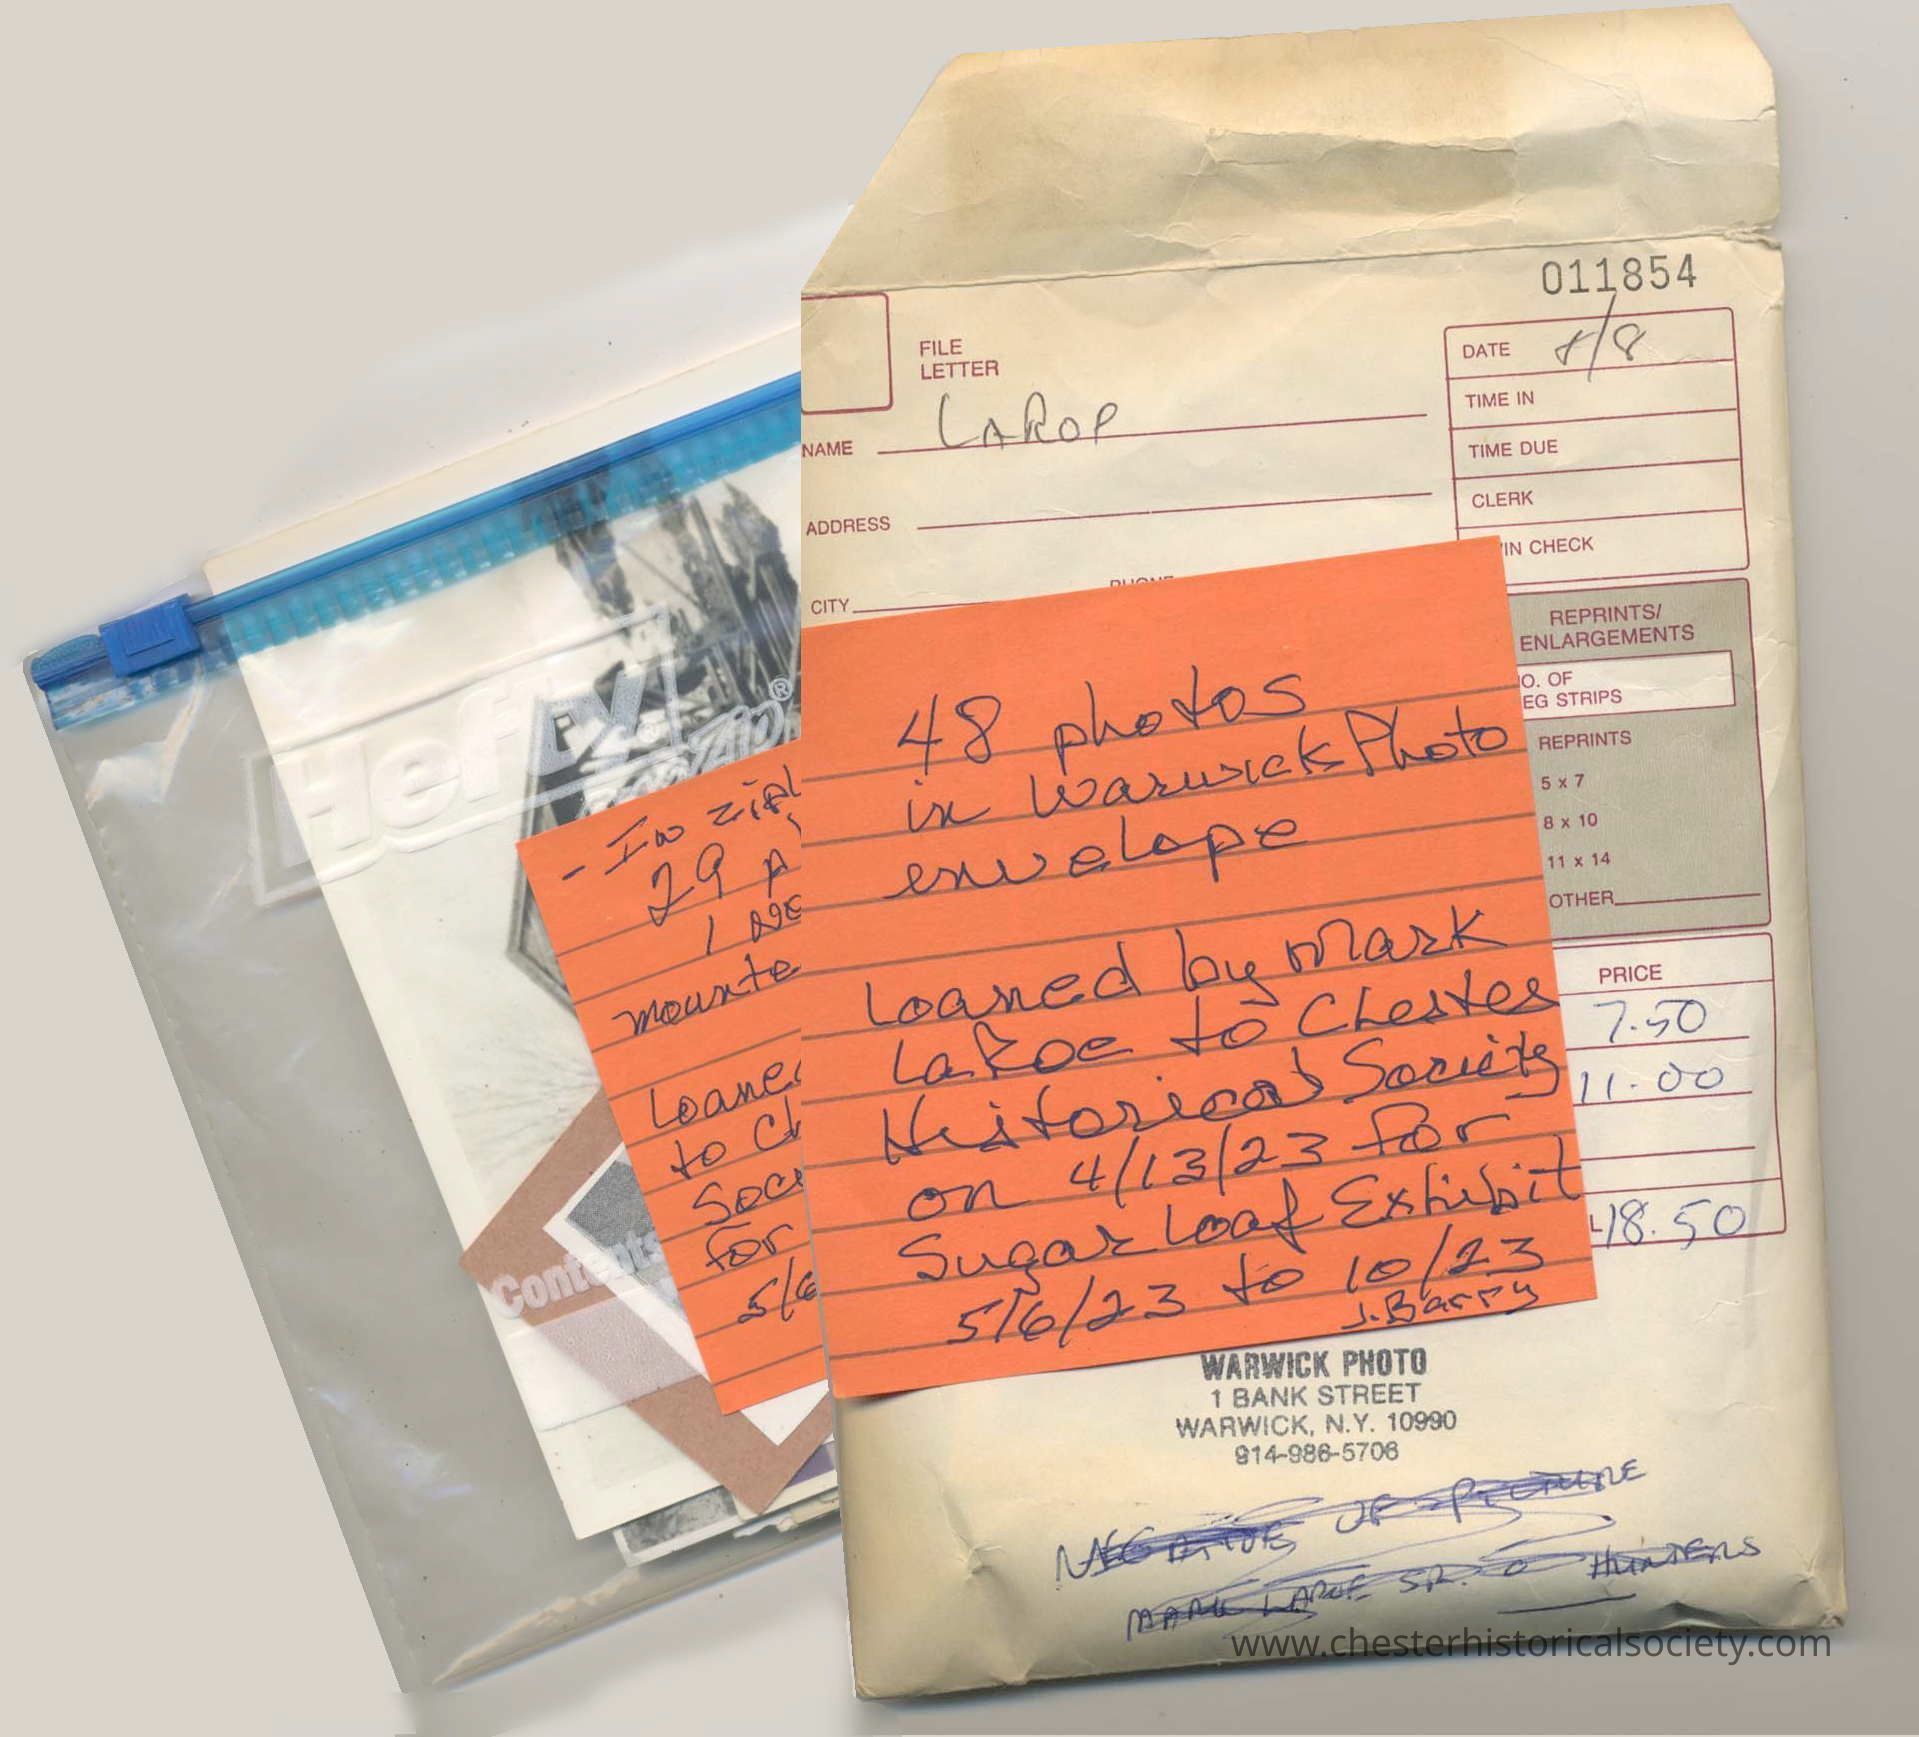 011854
FILE
LETTER
DATE
TIME IN
NAME LAROP
TIME DUE
ADDRESS
CLERK
IN CHECK
PHONE
CITY
REPRINTS/
ENLARGEMENTS
O. OF
EG STRIPS
REPRINTS
5 x 7
8 x 10
11 x 14
OTHER
PRICE
7.50
11.00
18.50
48 photos
in Warwick Photo
envelope
Loaned by Mark
LaRoe to Chester
Historical Society
on 4/13/23 for
Sugar Loaf Exhibit
5/6/23 to 10/23
J. Barry
WARWICK PHOTO
1 BANK STREET
WARWICK, N.Y. 10990
914-986-5706
NEGATIVE OF PICTURE
MARK LAROE SR. HUNTERS
www.chesterhistoricalsociety.com
Hefty
Zip®
- In
29
1
mounte
Loaned
to Ch
Soci
for
5/6
Contents